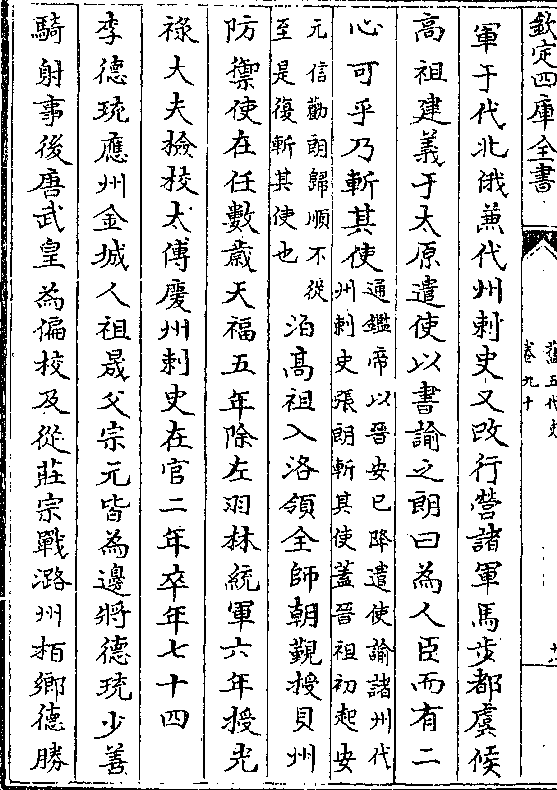 欽定四庫全書
舊五代史
卷九十
軍于代北俄兼代州刺史又改行營諸軍馬步都虞候
高祖建義于太原遣使以書諭之朗曰為人臣而有二
心可乎乃斬其使
通鑑帝以晉安已降遣使諭諸州代
州刺史張朗斬其使蓋晉祖初起安
元信勸朗歸順不從
至是復斬其使也
洎高祖入洛領全師朝覲授貝州
防禦使在任數歲天福五年除左羽林統軍六年授光
祿大夫撿校太傅慶州刺史在官二年卒年七十四
李德珫應州金城人祖晟父宗元皆為邊將德珫少善
騎射事後唐武皇為偏校及從莊宗戰潞州柏鄉德勝